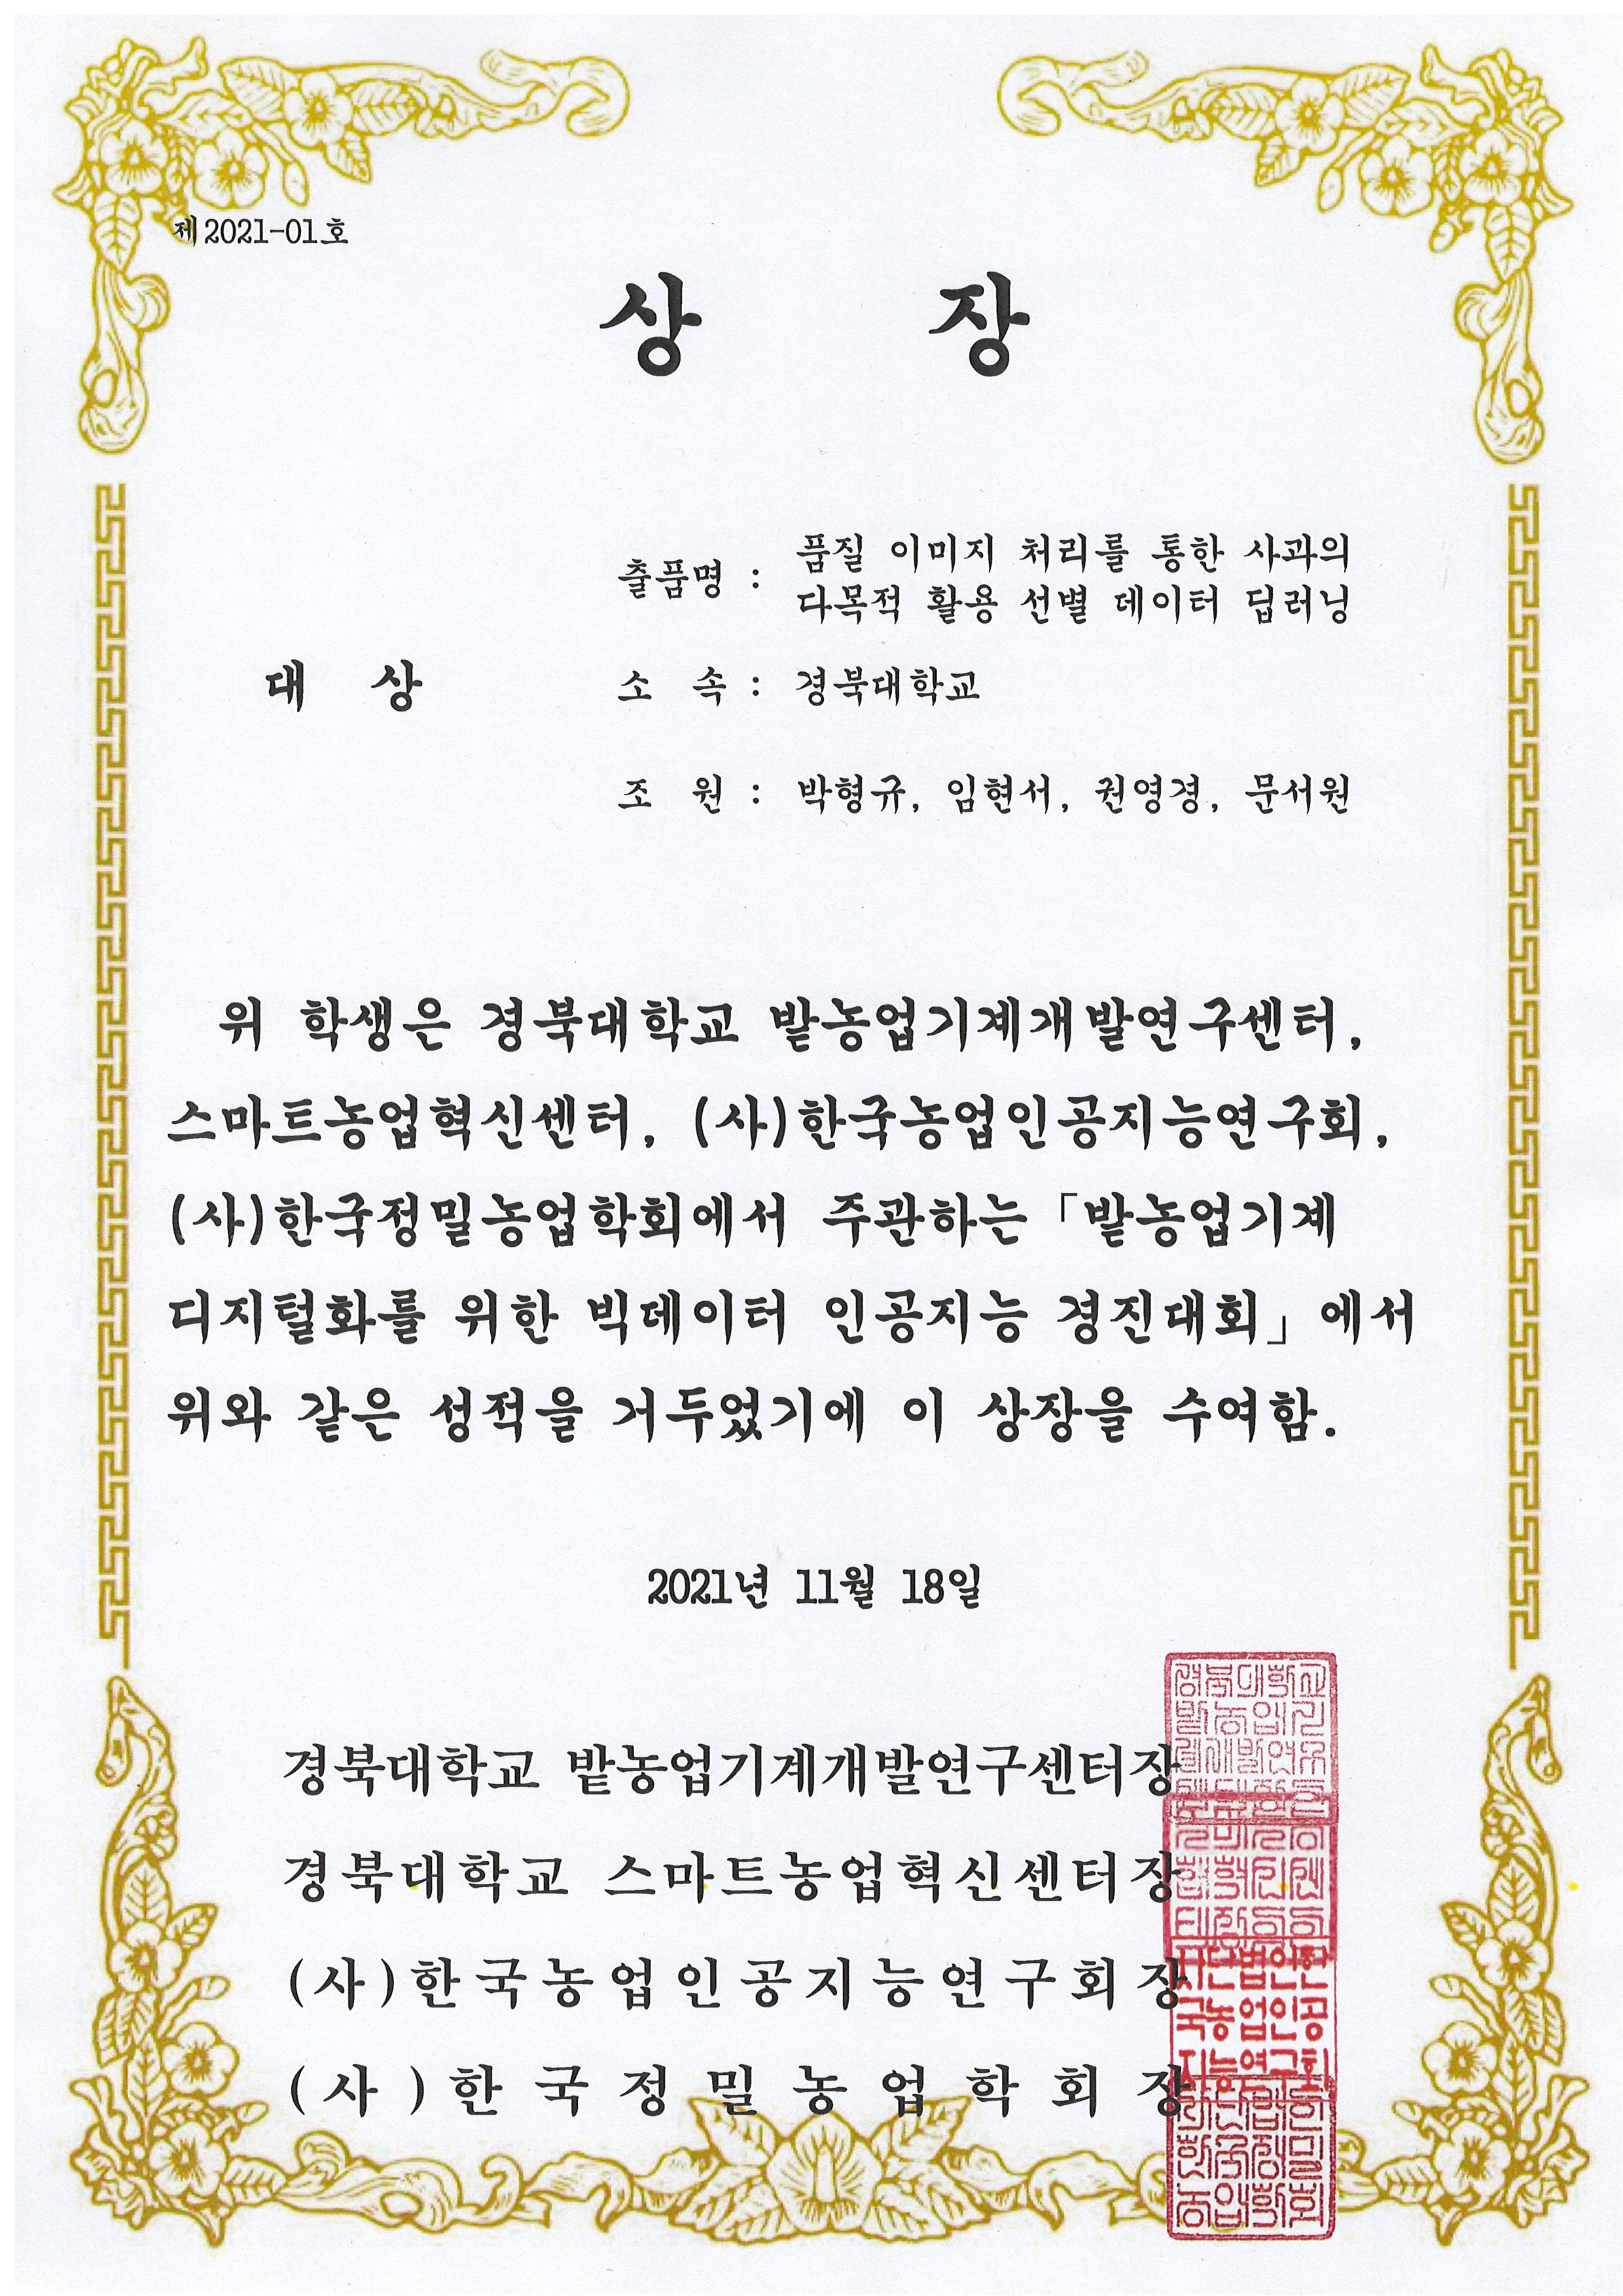 제2021-01호
상 장
출품명 : 품질 이미지 처리를 통한 사과의
다목적 활용 선별 데이터 딥러닝
대 상
소 속 : 경북대학교
조 원 : 박형규, 임현서, 권영경, 문서원
위 학생은 경북대학교 밭농업기계개발연구센터,
스마트농업혁신센터, (사)한국농업인공지능연구회,
(사)한국정밀농업학회에서 주관하는 「밭농업기계
디지털화를 위한 빅데이터 인공지능 경진대회」에서
위와 같은 성적을 거두었기에 이 상장을 수여함.
2021년 11월 18일
경북대학교 밭농업기계개발연구센터장
경북대학교 스마트농업혁신센터장
(사)한국농업인공지능연구회장
(사)한국정밀농업학회장
사단법인한
국농업인공
지능연구회